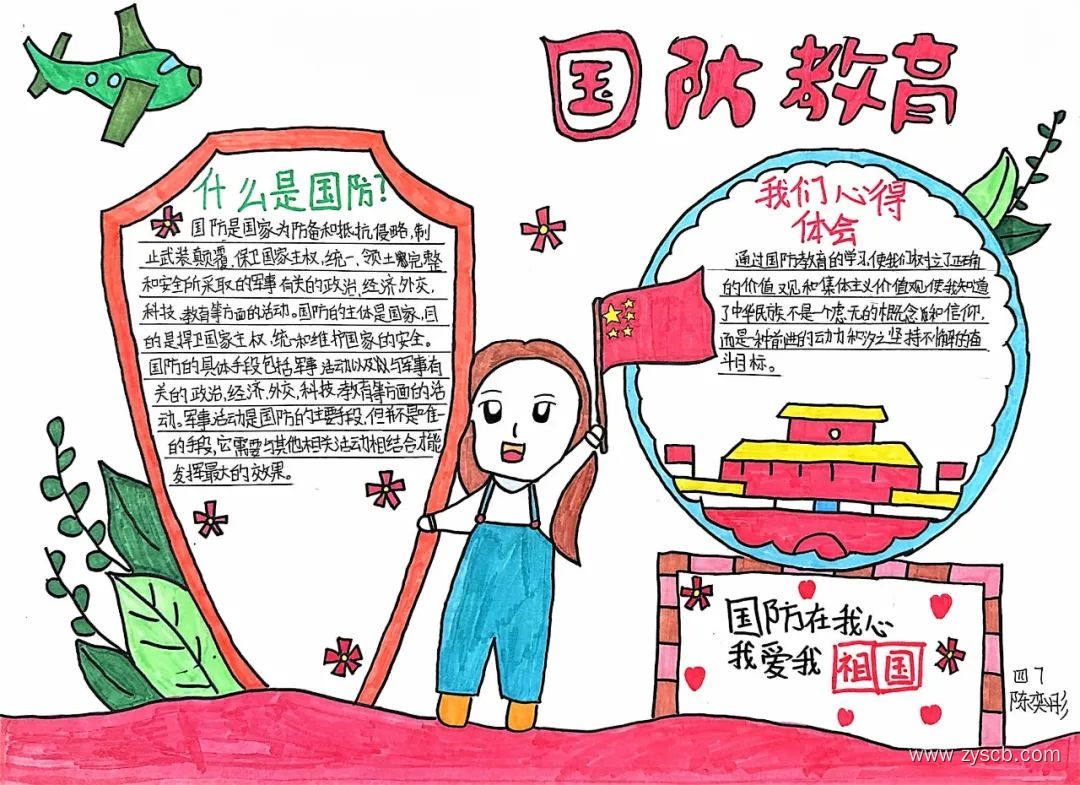 国防教育
什么是国防?
国防是国家为防备和抵抗侵略,制
止武装颠覆,保卫国家主权,统一、领土完整
和安全所采取的军事有关的政治,经济,外交,
科技,教育等方面的活动。国防的主体是国家,目
的是捍卫国家主权,统一和维护国家的安全。
国防的具体手段包括军事活动以及与军事有
关的政治,经济,外交,科技,教育等方面的活
动。军事活动是国防的主要手段,但并不是唯一
的手段,它需要与其他相关活动相结合才能
发挥最大的效果。
我们心得
体会
通过国防教育的学习,使我们树立了正确
的价值观和集体主义价值观,使我知道
了中华民族不是一个虚无的概念和信仰,
而是一种前进的动力和汐之坚持不懈的奋
斗目标。
国防在我心
我爱我祖国
四7
陈奕彤
www.zyscb.com